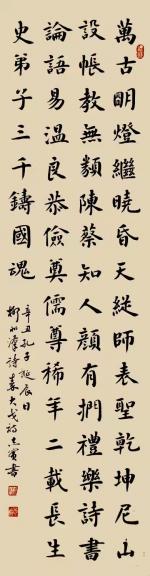 萬古明燈繼曉昏天縱師表聖乾坤尼山
設帳教無類陳蔡知人顏有捫禮樂詩書
論語易溫良恭儉奠儒尊稀年二載長生
史弟子三千鑄國魂
辛丑孔子誕辰日
詩 書